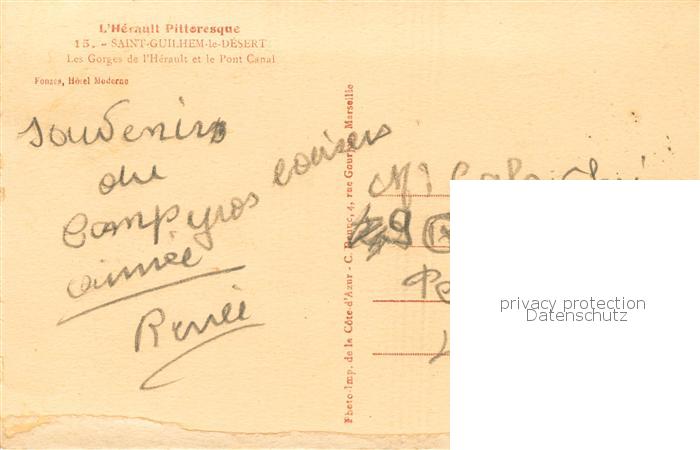 L'Hérault Pittoresque
15. - SAINT-GUILHEM-le-DÉSERT
Les Gorges de l'Hérault et le Pont Canal
Fonzes, Hôtel Moderne
Souvenirs
du
Campyros
aimée
Renée
Photo-Imp. de la Côte-d'Azur - C. 4, rue Marseille
Mr
9
privacy protection
Datenschutz